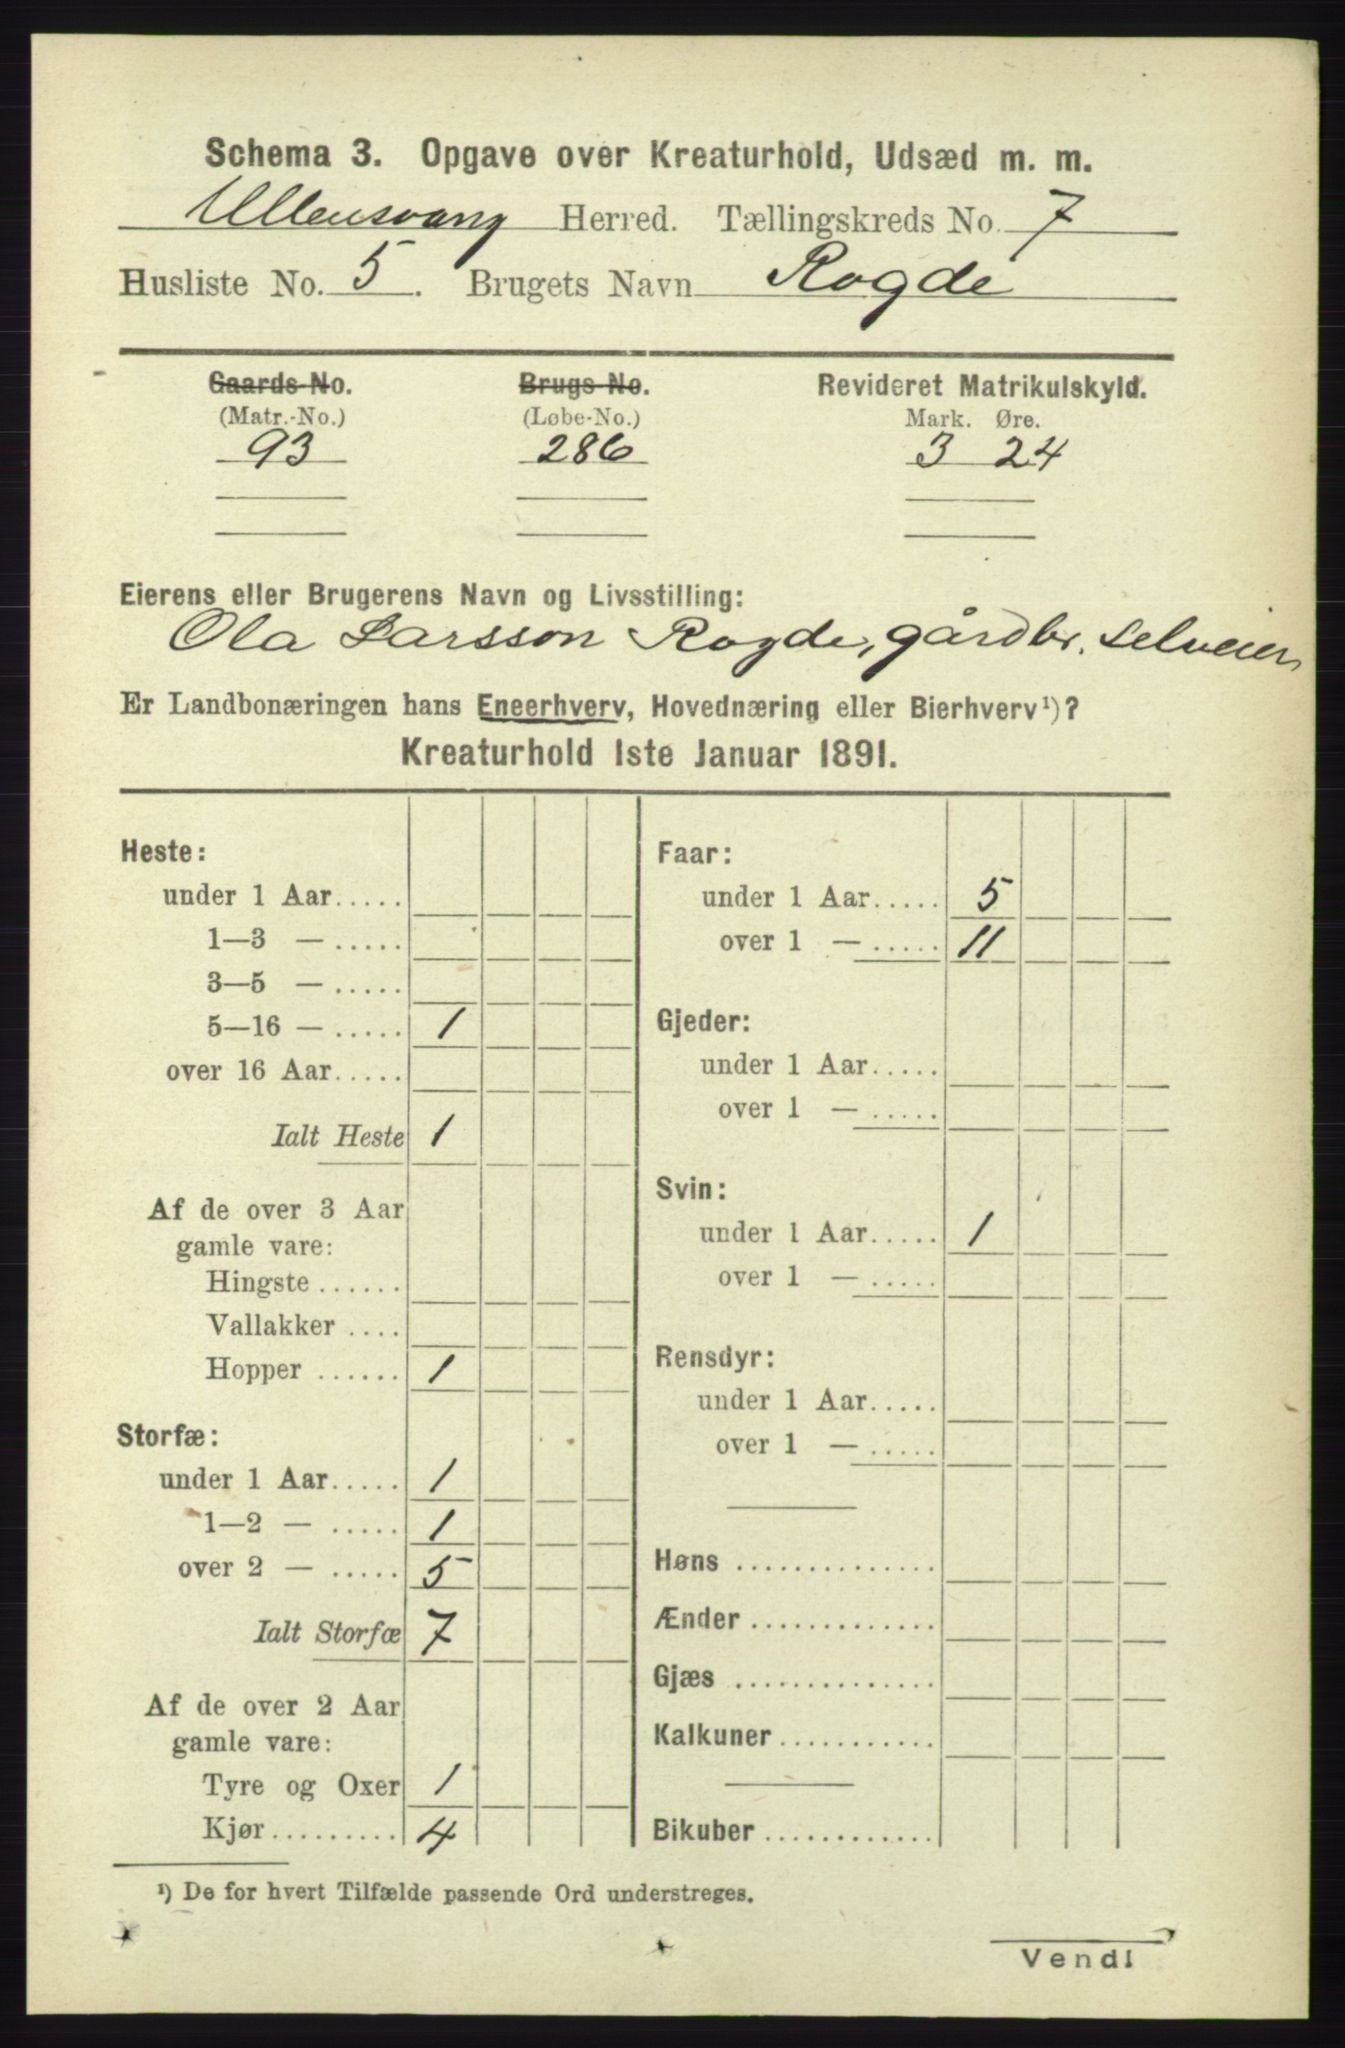 Schema 3. Opgave over Kreaturhold, Udsæd m. m.
Ullensvang Herred. Tællingskreds No. 7
Husliste No. 5. Brugets Navn Rogde
Gaards-No. Brugs-No. Revideret Matrikulskyld.
(Matr.-No.) (Løbe-No.) Mark. Øre.
93 286 3 24
Eierens eller Brugerens Navn og Livsstilling:
Ola Larsson Rogde, gårdbr. selveier
Er Landbonæringen hans Eneerhverv, Hovednæring eller Bierhverv¹)?
Kreaturhold 1ste Januar 1891.
Heste:
under 1 Aar.....
1—3 — .....
3—5 — .....
5—16 — ..... 1
over 16 Aar.....
Ialt Heste 1
Af de over 3 Aar
gamle vare:
Hingste ......
Vallakker ....
Hopper ...... 1
Storfæ:
under 1 Aar..... 1
1—2 — ..... 1
over 2 — ..... 5
Ialt Storfæ 7
Af de over 2 Aar
gamle vare:
Tyre og Oxer 1
Kjør......... 4
Faar:
under 1 Aar..... 5
over 1 — ..... 11
Gjeder:
under 1 Aar.....
over 1 — .....
Svin:
under 1 Aar..... 1
over 1 — .....
Rensdyr:
under 1 Aar.....
over 1 — .....
Høns ..............
Ænder .............
Gjæs ..............
Kalkuner ...........
Bikuber ............
¹) De for hvert Tilfælde passende Ord understreges.
Vend!